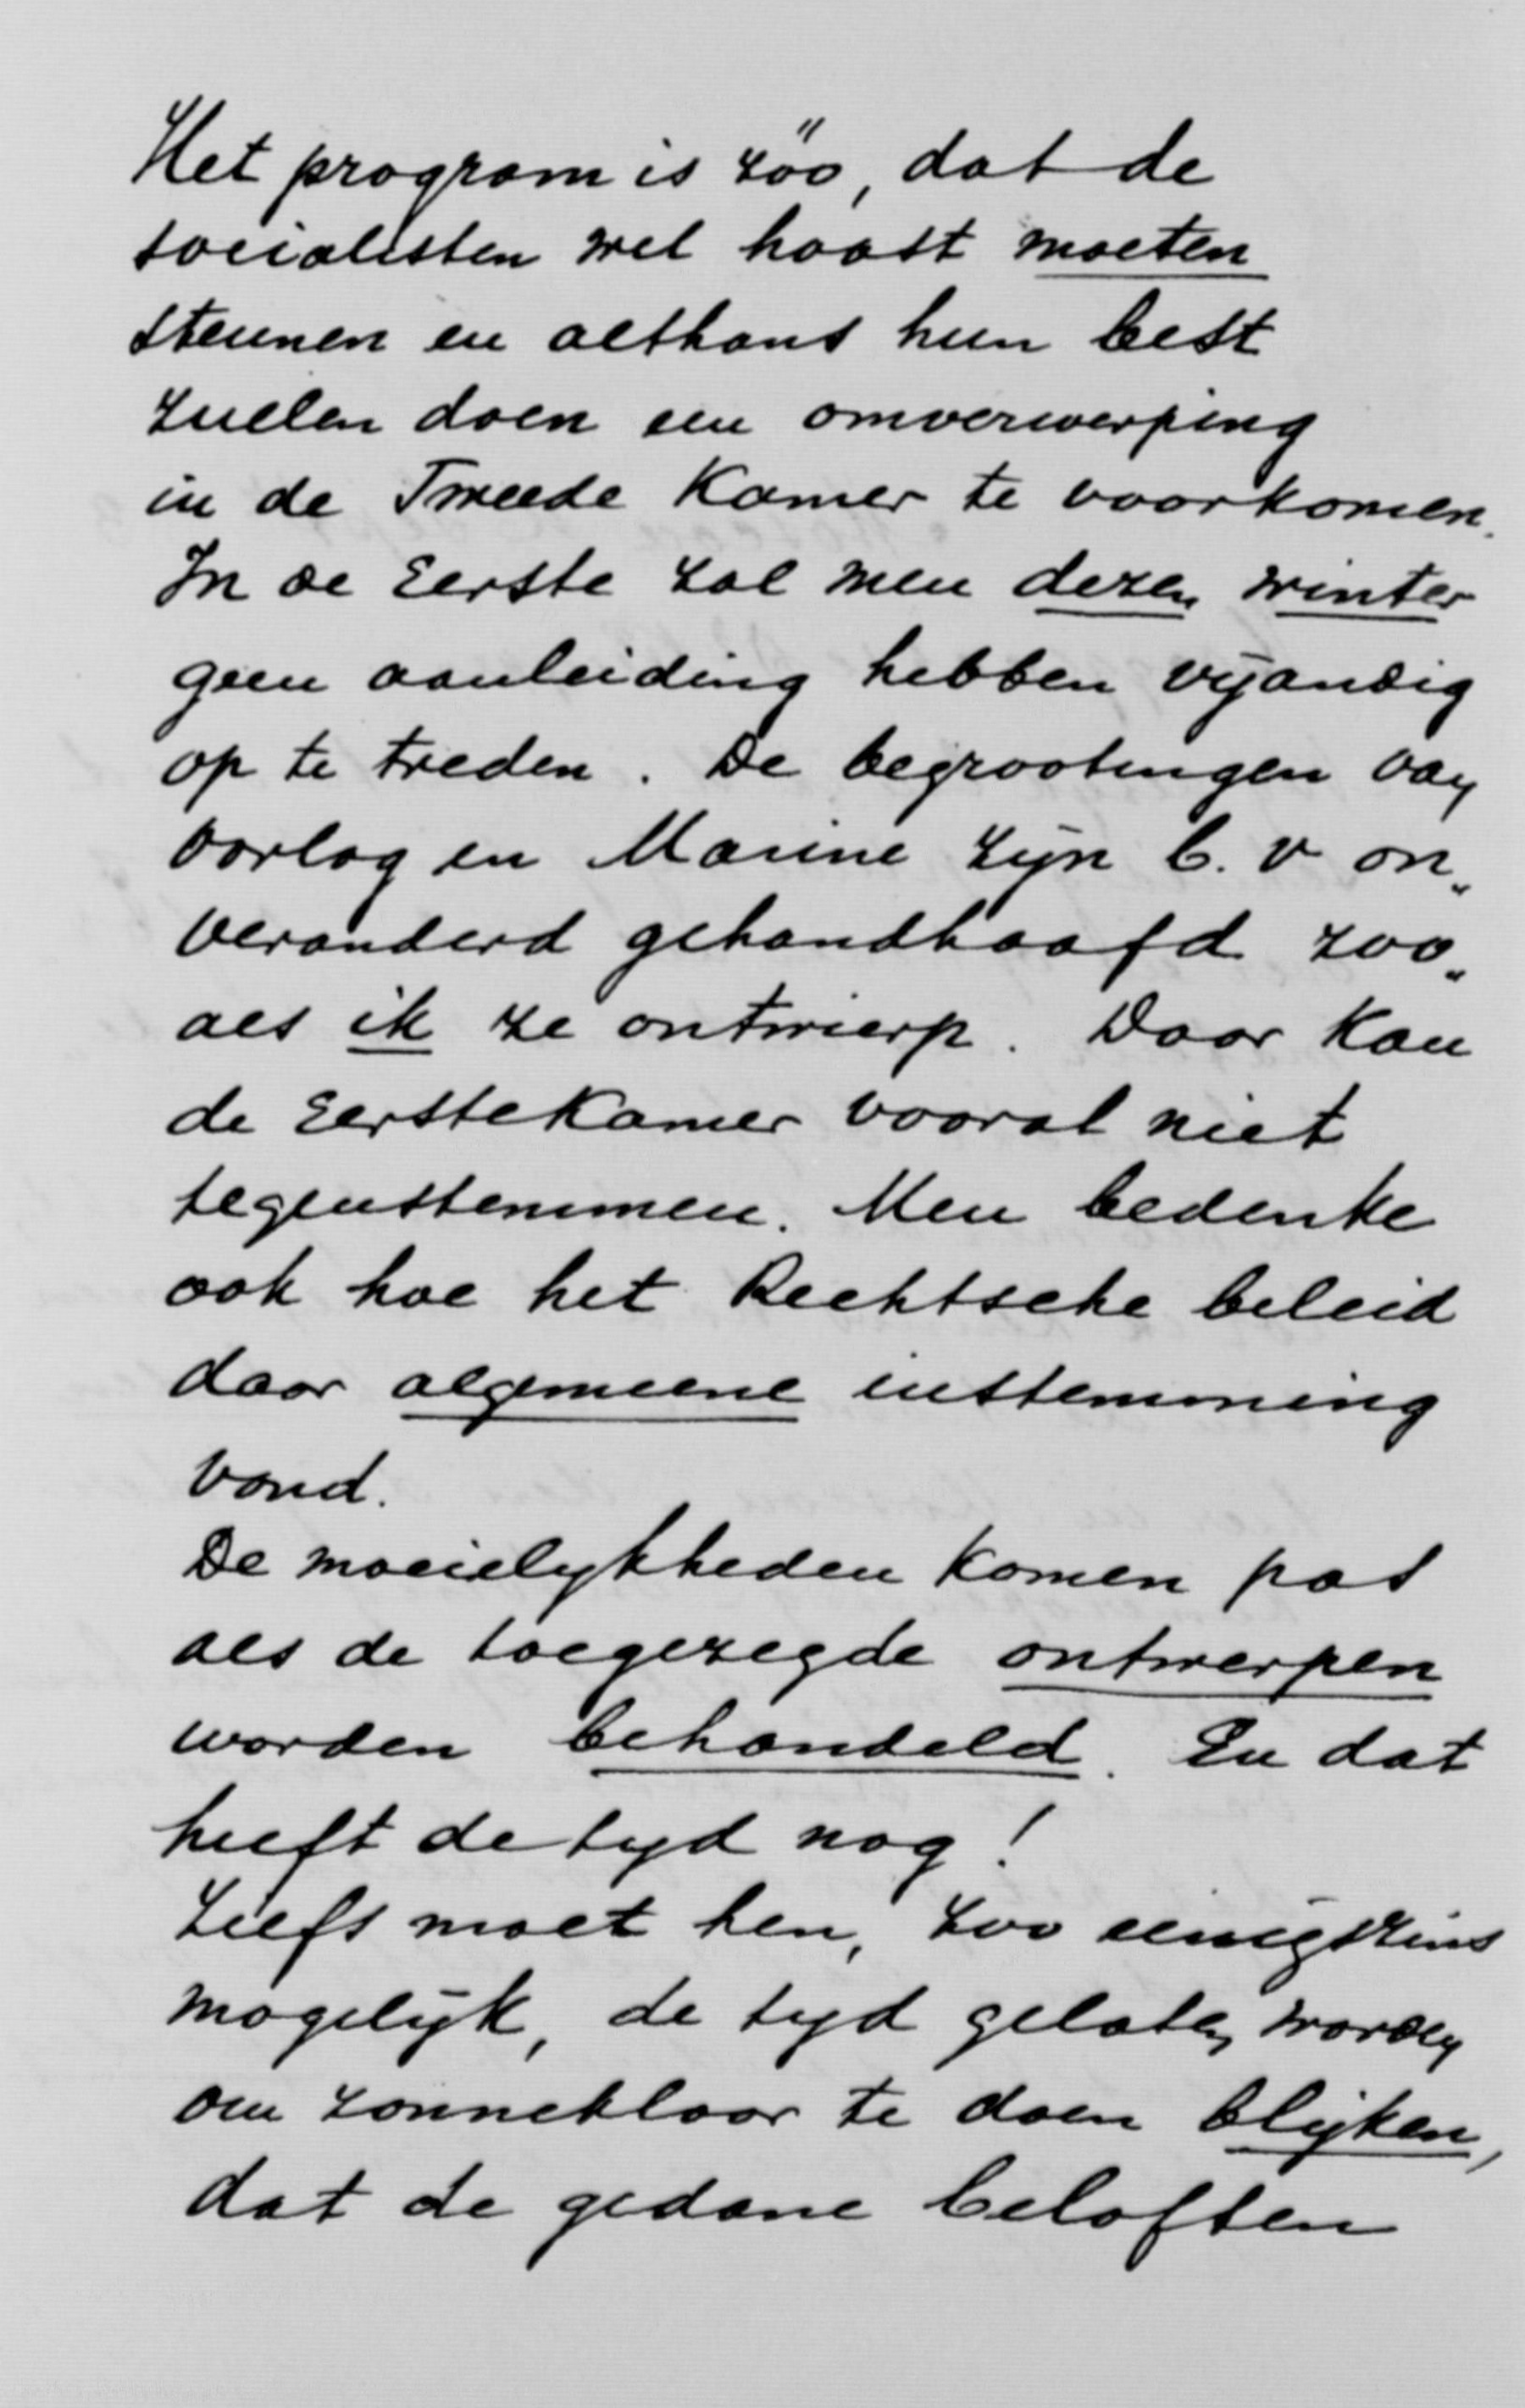 Het program is zóó, dat de
socialisten wel haast moeten
steunen en althans hun best
zullen doen een omverwerping
in de Tweede Kamer te voorkomen.
In de Eerste zal men dezen winter
geen aanleiding hebben vijandig
op te treden. De begrootingen van
Oorlog en Marine zijn b.v on„
veranderd gehandhaafd zoo„
als ik ze ontwierp. Daar kan
de Eerste Kamer vooral niet
tegenstemmen. Men bedenke
ook hoe het Rechtsche beleid
daar algemeene instemming
vond.
De moeielykheden komen pas
als de toegezegde ontwerpen
worden behandeld. En dat
heeft de tyd nog!
Liefs moet hen, zoo eenigszins
mogelijk, de tyd gelaten worden
om zonneklaar te doen blijken,
dat de gedane beloften